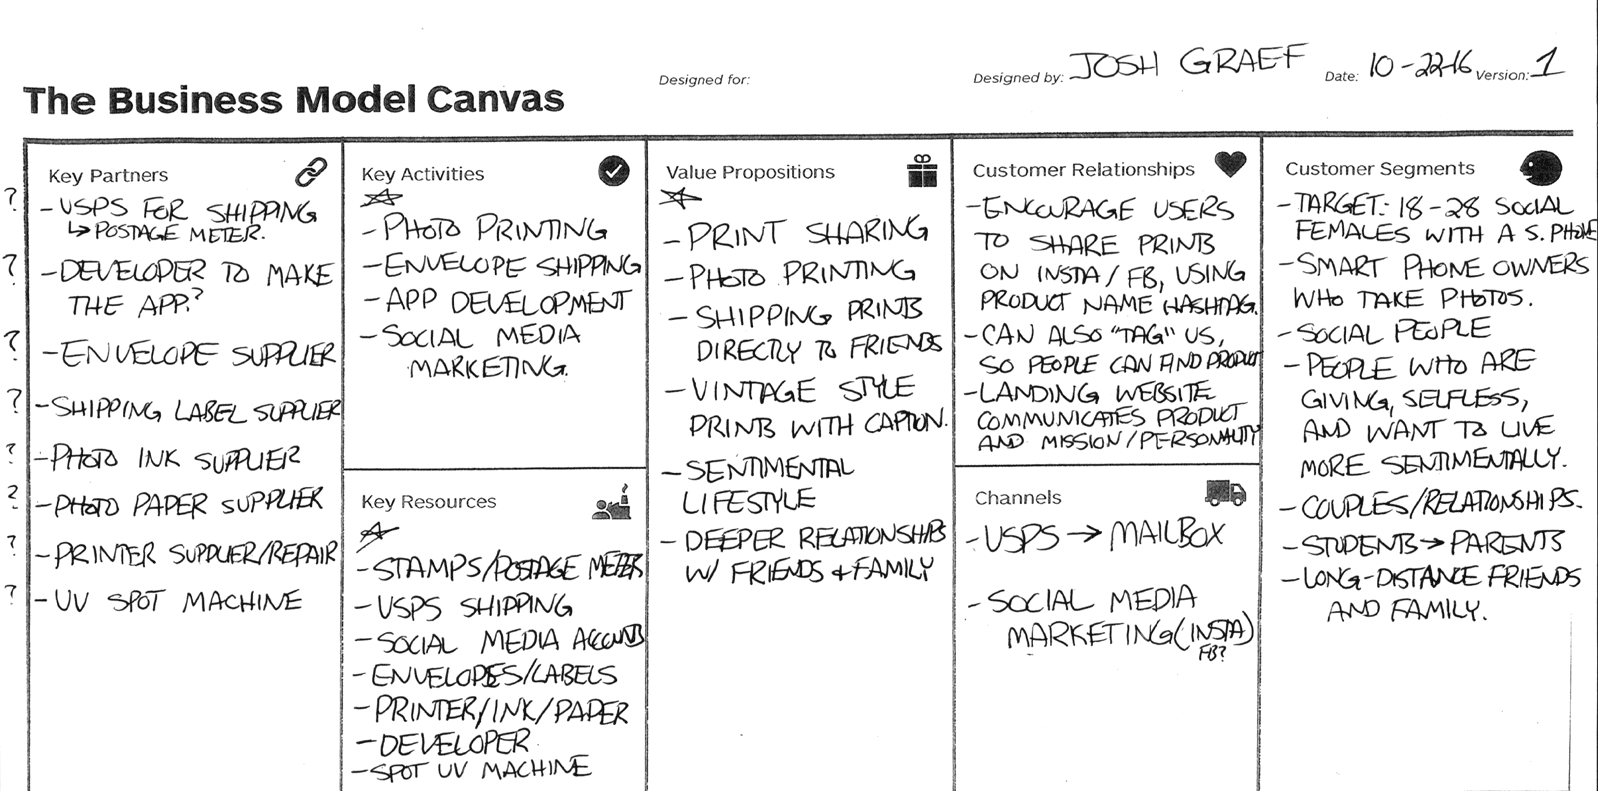 Designed for:
Designed by: JOSH GRAEF
Date: 10-22-16 Version: 1
The Business Model Canvas
Key Partners
? - USPS FOR SHIPPING
↳ POSTAGE METER.
? - DEVELOPER TO MAKE
THE APP?
? - ENVELOPE SUPPLIER
? - SHIPPING LABEL SUPPLIER
? - PHOTO INK SUPPLIER
? - PHOTO PAPER SUPPLIER
? - PRINTER SUPPLIER/REPAIR
? - UV SPOT MACHINE
Key Activities
- PHOTO PRINTING
- ENVELOPE SHIPPING
- APP DEVELOPMENT
- SOCIAL MEDIA
MARKETING.
Key Resources
- STAMPS/POSTAGE METER
- USPS SHIPPING
- SOCIAL MEDIA ACCOUNTS
- ENVELOPES/LABELS
- PRINTER/INK/PAPER
- DEVELOPER
- SPOT UV MACHINE
Value Propositions
- PRINT SHARING
- PHOTO PRINTING
- SHIPPING PRINTS
DIRECTLY TO FRIENDS
- VINTAGE STYLE
PRINTS WITH CAPTION.
- SENTIMENTAL
LIFESTYLE
- DEEPER RELATIONSHIPS
W/ FRIENDS + FAMILY
Customer Relationships
- ENCOURAGE USERS
TO SHARE PRINTS
ON INSTA/FB, USING
PRODUCT NAME HASHTAG.
- CAN ALSO "TAG" US,
SO PEOPLE CAN FIND PRODUCT
- LANDING WEBSITE
COMMUNICATES PRODUCT
AND MISSION/PERSONALITY
Channels
- USPS → MAILBOX
- SOCIAL MEDIA
MARKETING (INSTA)
FB?
Customer Segments
- TARGET: 18-28 SOCIAL
FEMALES WITH A S. PHONE
- SMART PHONE OWNERS
WHO TAKE PHOTOS.
- SOCIAL PEOPLE
- PEOPLE WHO ARE
GIVING, SELFLESS,
AND WANT TO LIVE
MORE SENTIMENTALLY.
- COUPLES/RELATIONSHIPS.
- STUDENTS → PARENTS
- LONG-DISTANCE FRIENDS
AND FAMILY.